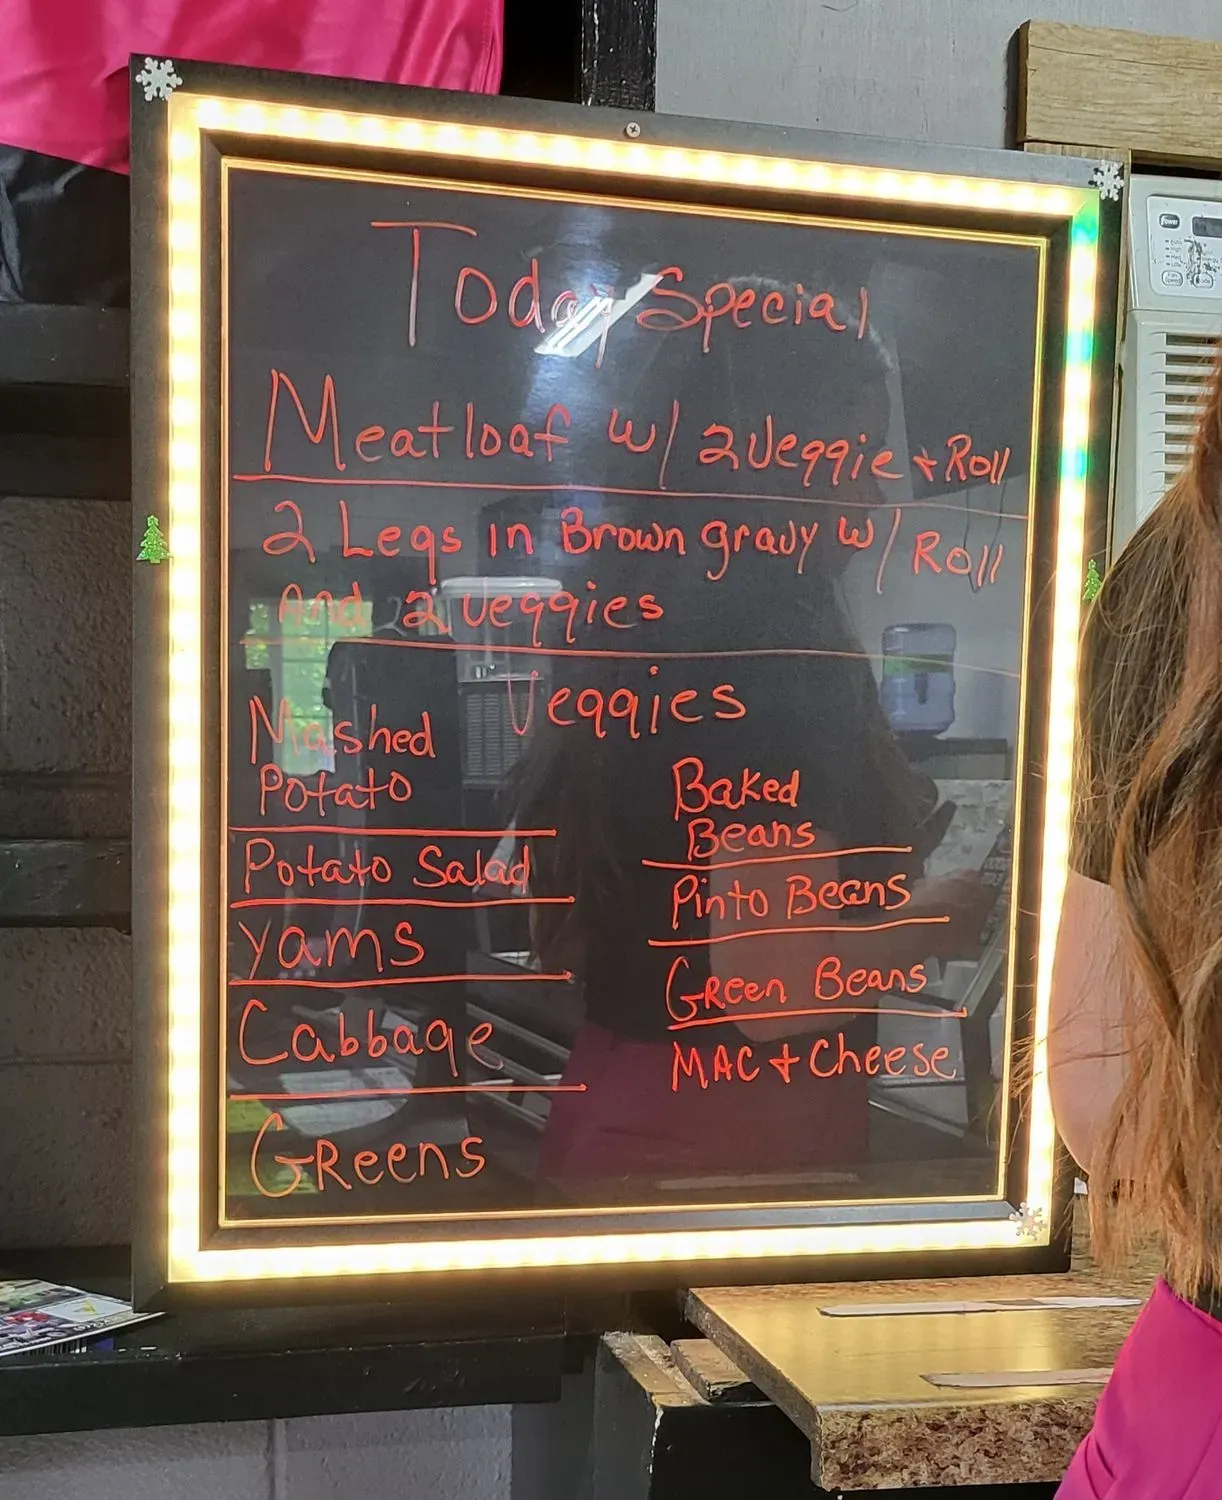 Today Special
Meatloaf w/ 2 Veggie + Roll
2 Legs in Brown gravy w/ Roll
and 2 veggies
Veggies
Mashed
Potato
Potato Salad
Yams
Cabbage
Greens
Baked
Beans
Pinto Beans
Green Beans
MAC + Cheese